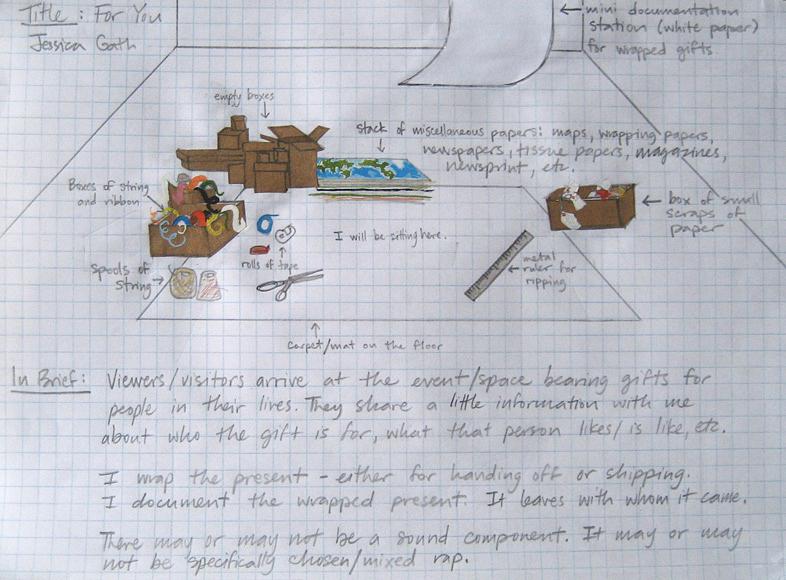 Title: For You
Jessica Gath
mini documentation
station (white paper)
for wrapped gifts
empty boxes
stack of miscellaneous papers: maps, wrapping papers,
newspapers, tissue papers, magazines,
newsprint, etc.
Boxes of string
and ribbon
box of small
scraps of
paper
I will be sitting here.
rolls of tape
metal
ruler for
ripping
spools of
string
carpet/mat on the floor
In Brief: Viewers/visitors arrive at the event/space bearing gifts for
people in their lives. They share a little information with me
about who the gift is for, what that person likes/is like, etc.
I wrap the present - either for handing off or shipping.
I document the wrapped present. It leaves with whom it came.
There may or may not be a sound component. It may or may
not be specifically chosen/mixed rap.